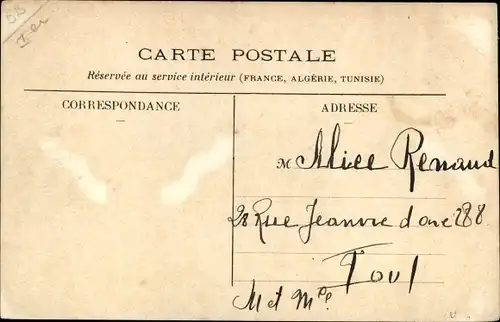 CARTE POSTALE
Réservée au service intérieur (FRANCE, ALGÉRIE, TUNISIE)
CORRESPONDANCE
ADRESSE
M Alice Renaud
28 Rue Jeanne d'arc 288
Toul
M et Mle